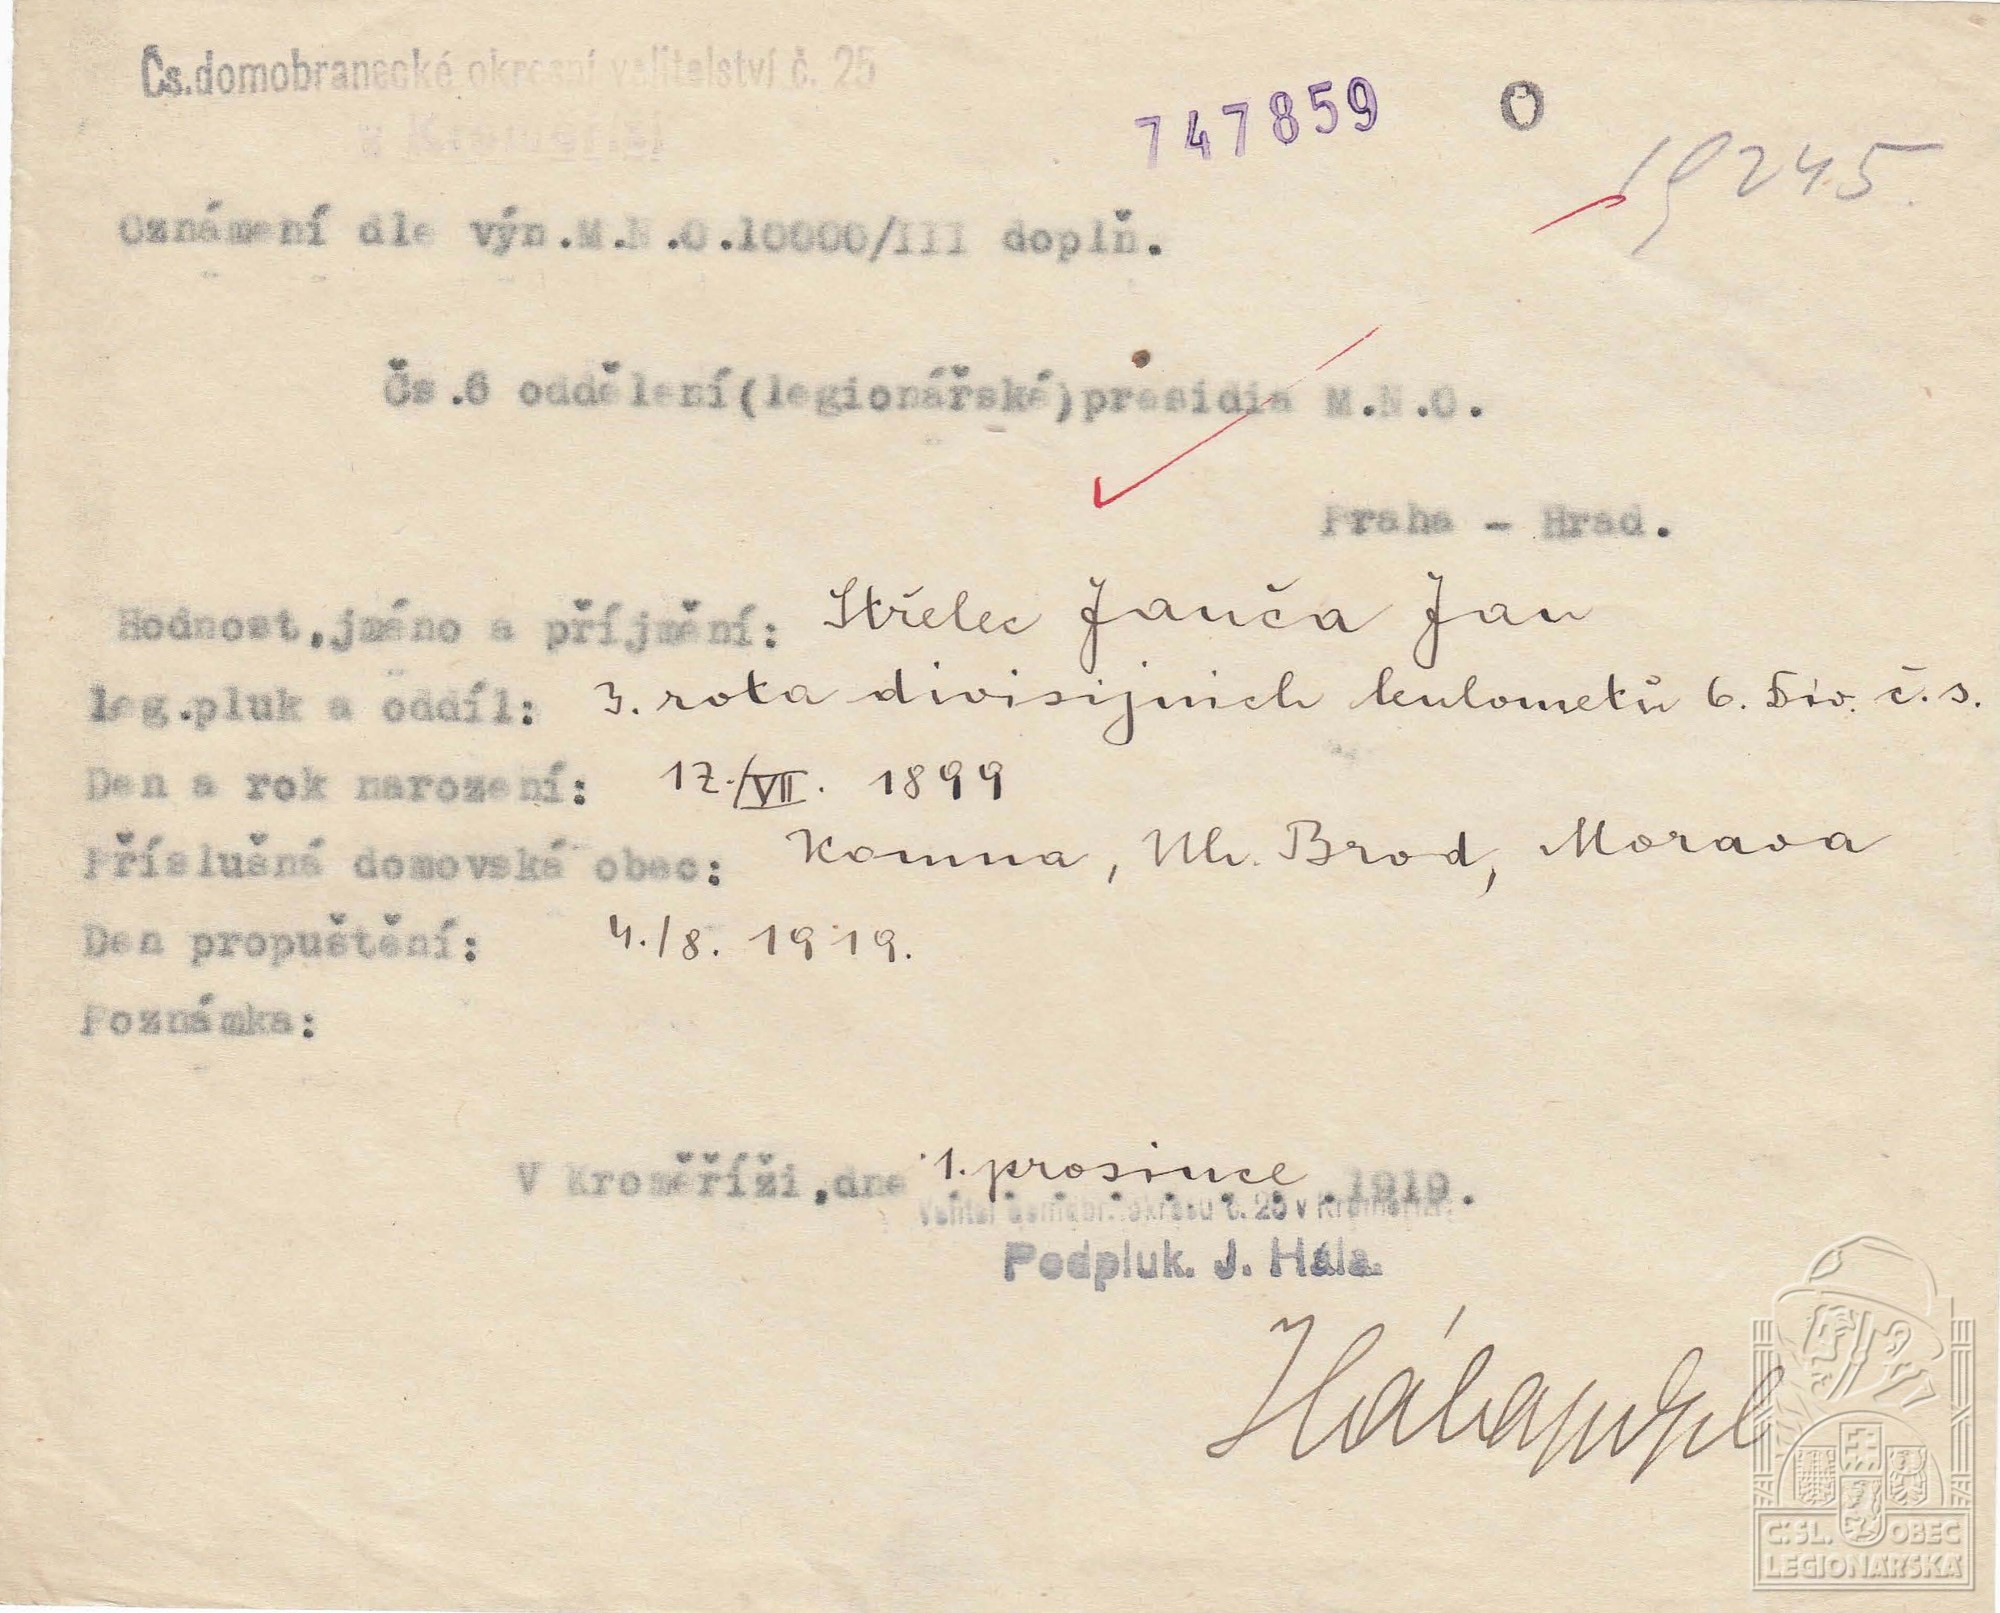 Čs. domobranecké okresní velitelství č. 25
v Kroměříži
747859
O
19245.
Oznámení dle výn.M.N.O.10000/III doplň.
Čs.6 oddělení(legionářské)presidia M.N.O.
Praha - Hrad.
Hodnost,jméno a příjmění: Střelec Janča Jan
leg.pluk a oddíl: 3. rota divisijnich kulometů 6. Div. č. s.
Den a rok narození: 17./VII. 1899
Příslušná domovská obec: Komna, Uh. Brod, Morava
Den propuštění: 4./8. 1919.
Poznámka:
V Kroměříži,dne 1. prosince 1919.
Velitel domobr. okresu č. 25 v Kroměříži.
Podpluk. J. Hála.
Hála
Č.SL. OBEC
LEGIONÁŘSKÁ